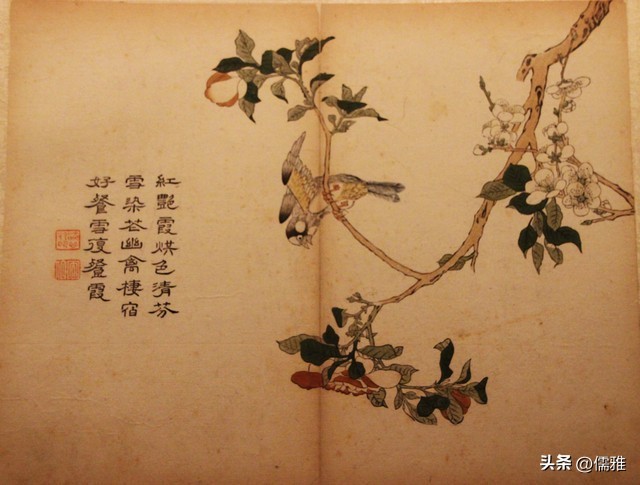 紅艷霞烘色清芬
雪染花幽禽棲宿
好餐雪復餐霞
头条 @儒雅